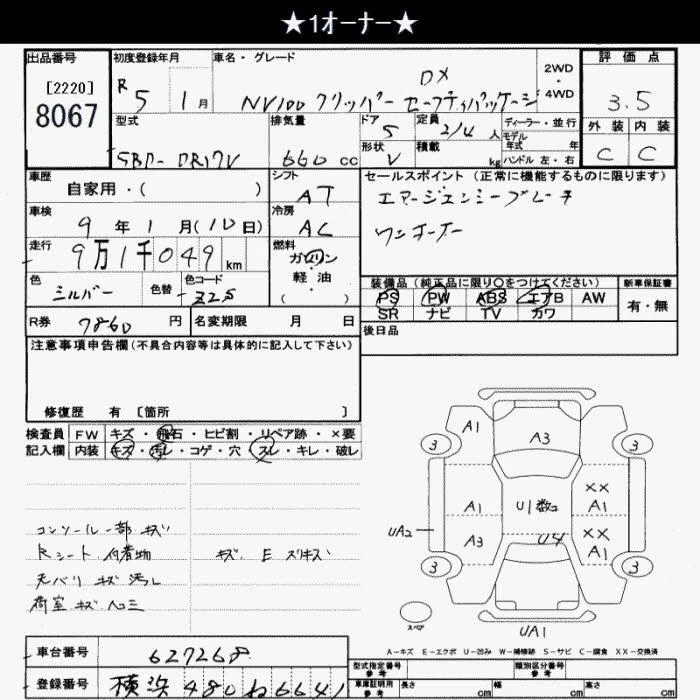 ★1オーナー★
出品番号
[2220]
8067
初度登録年月
R 5 1月
車名・グレード
DX
NV100 クリッパー セーフティパッケージ
2WD
・
4WD
評価点
3.5
外装 内装
C C
型式
5BD-DR17V
排気量
660 cc
ドア
5
形状
V
定員
2/4 人
積載
kg
ディーラー・並行
モデル
年式 年
ハンドル 左・右
車歴
自家用・( )
シフト
AT
セールスポイント (正常に機能するものに限ります)
エマージェンシーブレーキ
ワンオーナー
車検
9年1月(10日)
冷房
AC
走行
9万1千049 km
燃料
ガソリン
・
軽油
( )
色
シルバー
色替
色コード
Z2S
装備品 (純正品に限り○をつけてください)
PS PW ABS エアB AW
SR ナビ TV カワ
新車保証書
有・無
R券
7860 円
名変期限 月 日
後日品
注意事項申告欄 (不具合内容等は具体的に記入して下さい)
修復歴 有 [箇所 ]
検査員 FW キズ・飛石・ヒビ割・リペア跡・×要
記入欄 内装 キズ・汚レ・コゲ・穴・スレ・キレ・破レ
コンソール一部 キズ
Rシート 付着物 キズ E スリキズ
天バリ キズ 汚レ
荷室 キズ ヘコミ
A1
A3
3
3
A1
U1 数コ
XX
UA2
A3
U4
XX
A1
3
3
スペア
UA1
A-キズ E-エクボ U-凹み W-補修跡 S-サビ C-腐食 XX-交換済
車台番号
627268
登録番号
横浜 480 ね 6641
型式指定番号
参考
類別区分番号
参考
車庫証明用
参考
長さ cm
幅 cm
高さ cm